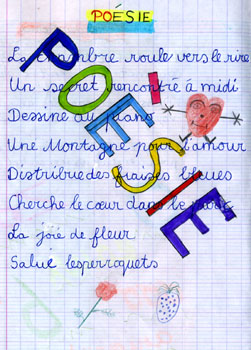 POÉSIE
La chambre roule vers le rire
Un secret rencontré à midi
Dessine au piano
Une Montagne pour l'amour
Distribue des fraises bleues
Cherche le cœur dans le
La joie de fleur
Salue lesperroquets
POÉSIE